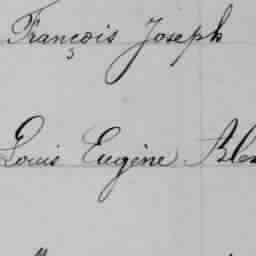 François Joseph
Louis Eugène